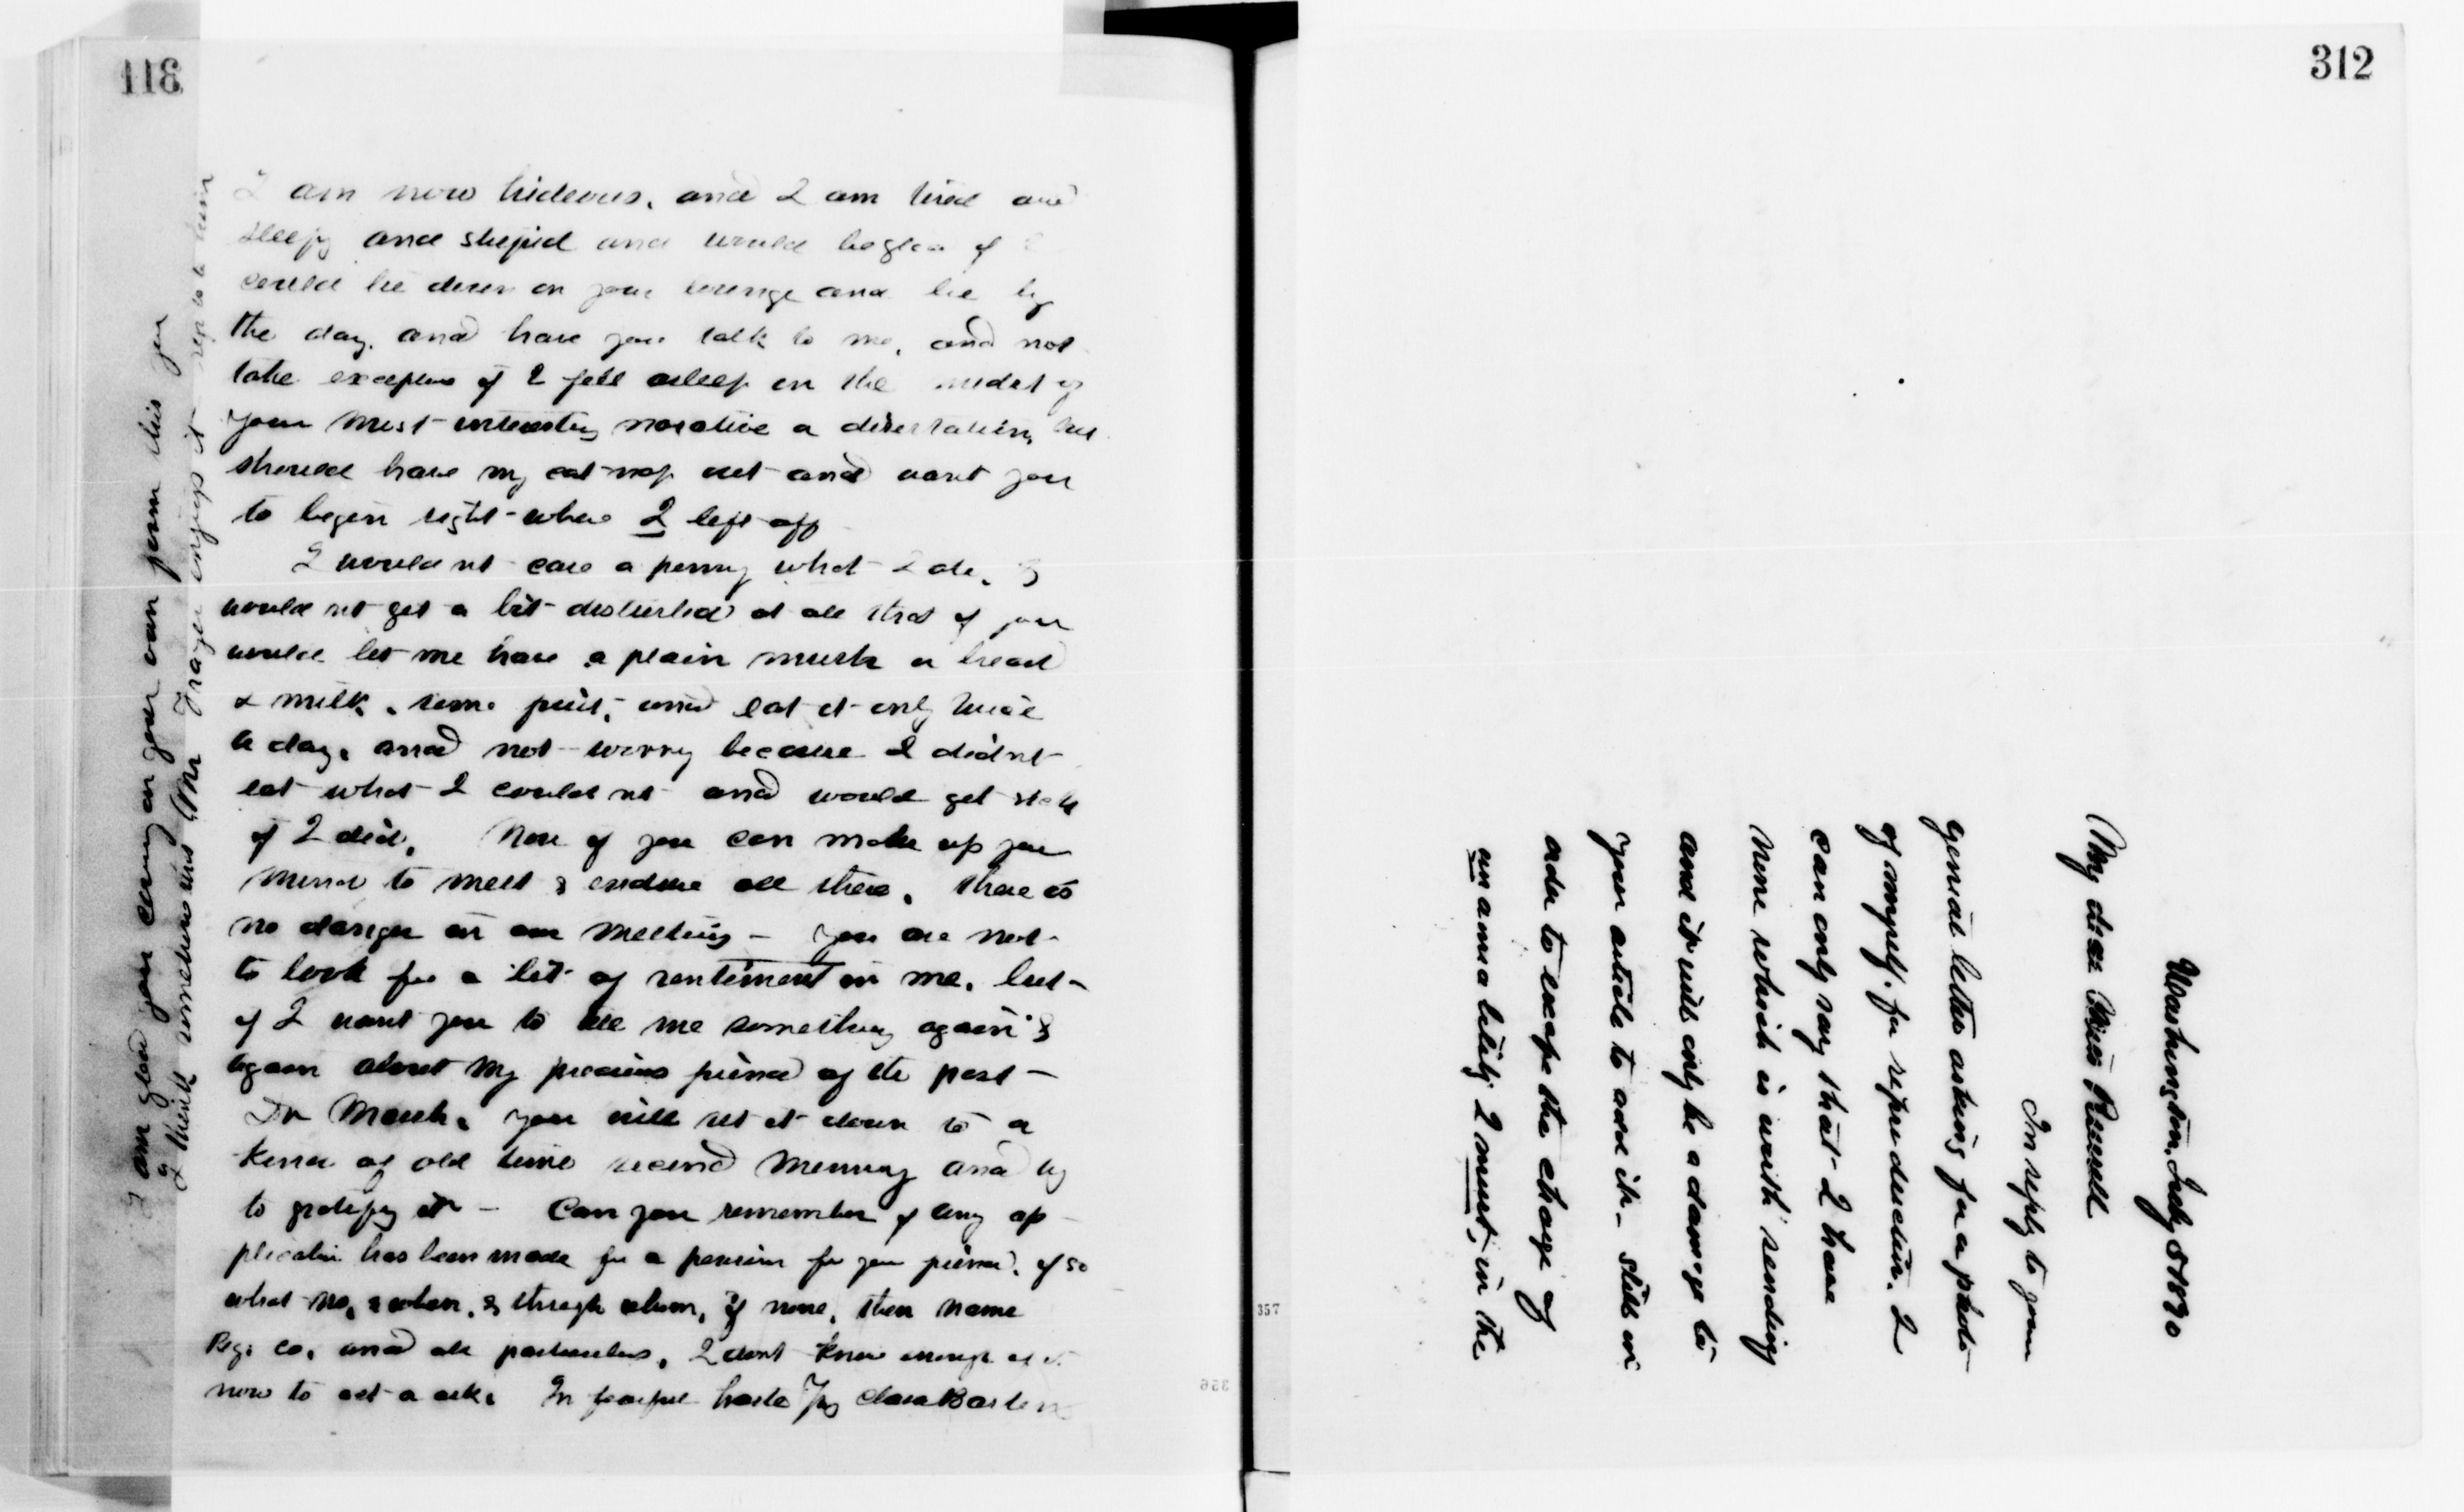 118
I am now hideous, and I am tired and
sleepy and stupid and would be glad if I
could lie down on your lounge and lie by
the day, and have you talk to me, and not
take exceptions if I fell asleep in the midst of
your most interesting narative or dissertation, but
should have my cat-nap out and want you
to begin right where I left off
I would nt care a penny what I ate, &
would nt get a bit disturbed at all that if you
would let me have a plain mush or bread
& milk, some fruit, and eat it only twice
a day, and not worry because I did nt
eat what I could nt and would get sick
if I did. Now if you can make up your
mind to meet & endure all these, there is
no danger in our meeting – you are not
to look for a bit of sentiment in me, but
if I want you to tell me something again &
again about my precious friend of the past –
Dr Marsh, you will set it down to a
kind of old time second memory and try
to gratify it – Can you remember if any ap
plication has been made for a pension for your friend, if so
what no, & when, & through whom, if none, then name
Reg. co. and all particulars, I dont know enough of it
now to act or ask. In fearful haste Yrs Clara Barton
I am glad you carry on your own farm this year
I think sometimes Mr Frazer enjoys it
312
Washington, July 8 1890
My dear Miss Russell
In reply to your
genial letter asking for a photo
of myself, for reproduction. I
can only say that I have
none which is worth sending
and it will only be a damage to
your article to add it – Still in
order to escape the charge of
un amiability I must, in the
356
357